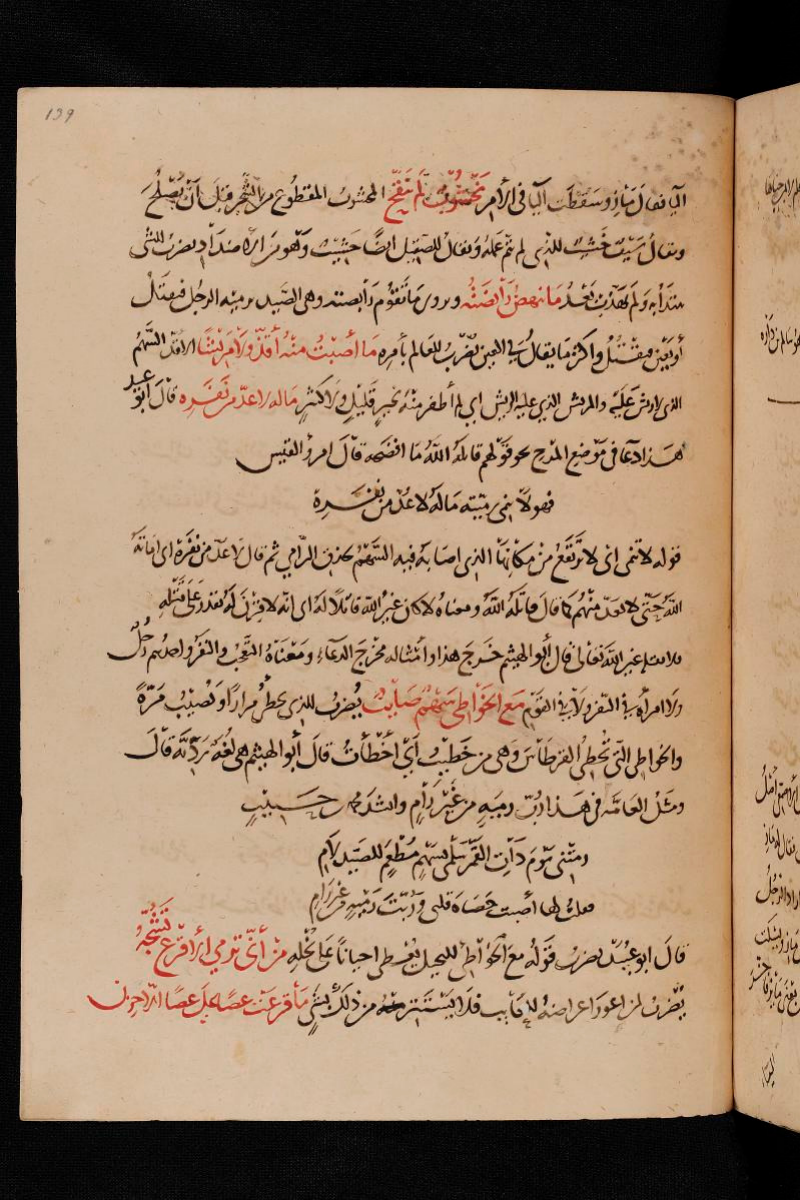 139
اليا فقال مأذ وسقطت اليا في الأمر مخشوب لم ينقح المخشوب المقطوع من الشجر قبل أن يصلح
ويقال سيف خشيب للذي لم يتم عمله ويقال للصقيل ايضا خشيب وهو من الاضداد يضرب للشئ
يبتدأ به ولم يهذب بعد ما نهض رابضته ويروى ما تقوم رابضته وهي الصيد يرميه الرجل فيقتل
أو يعين فيقتل واكثر ما يقال في العين يضرب للعالم بأمره ما أصبت منه أقذ ولا مريشا الاقذ السهم
الذي لا ريش عليه والمريش الذي عليه الريش اي لم أظفر منه بخير قليل ولا كثير ماله لا عد من نفره قال أبو عبيد
هذا دعا في موضع المدح نحو قولهم قاتله الله ما افصحه قال امرؤ القيس
فهو لا تنمي رميته ماله لا عد من نفره
قوله لا تنمى اي لا ترتفع من مكانها الذي اصابه فيه السهم لحذق الرامي ثم قال لا عد من نفره اي اماته
الله حتى لا يعد منهم كما قال قاتله الله ومعناه لا كان غير الله قاتلا له اي انه لا قرن له يقدر على قتله
فلا يقتله غير الله تعالى قال أبو الهيثم خرج هذا وامثاله مخرج الدعاء ومعناه التعجب والنفر واحدهم رجل
ولا امرأة في النفر ولا في القوم مع الخواطي سهم صائب يضرب للذي يخطئ مرارا ويصيب مرة
والخواطي التي تخطئ القرطاس وهي من خطيت أي أخطأت قال أبو الهيثم هي لغة رديئة قال
ومثل العامة في هذا ربت رمية من غير رام وانشد محمد بن حبيب
رمتني يوم ذات الغمر سلمى بسهم مطعم للصيد لام
فقلت لها أصبت حصاة قلبي وربت رمية من غير رام
قال ابو عبيد يضرب قوله مع الخواطي للبخيل يعطي احيانا على بخله من أنى ترمي الاقرع تشجه
يضرب لمن اعور اعراضه للعايب فلا يستتر من ذلك بشئ ما قرعت عصا على عصا الا حزن